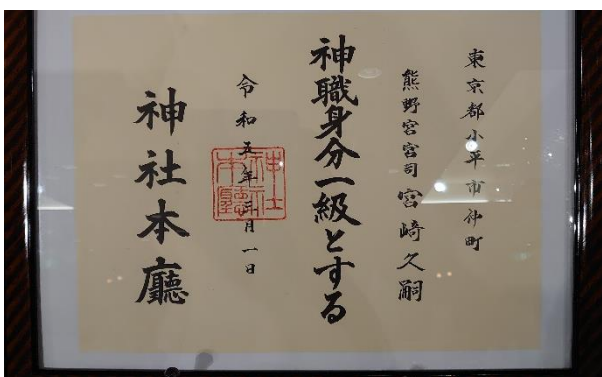 東京都小平市仲町
熊野宮宮司 宮崎久嗣
神職身分一級とする
令和五年三月一日
神社本廳
神社本廳